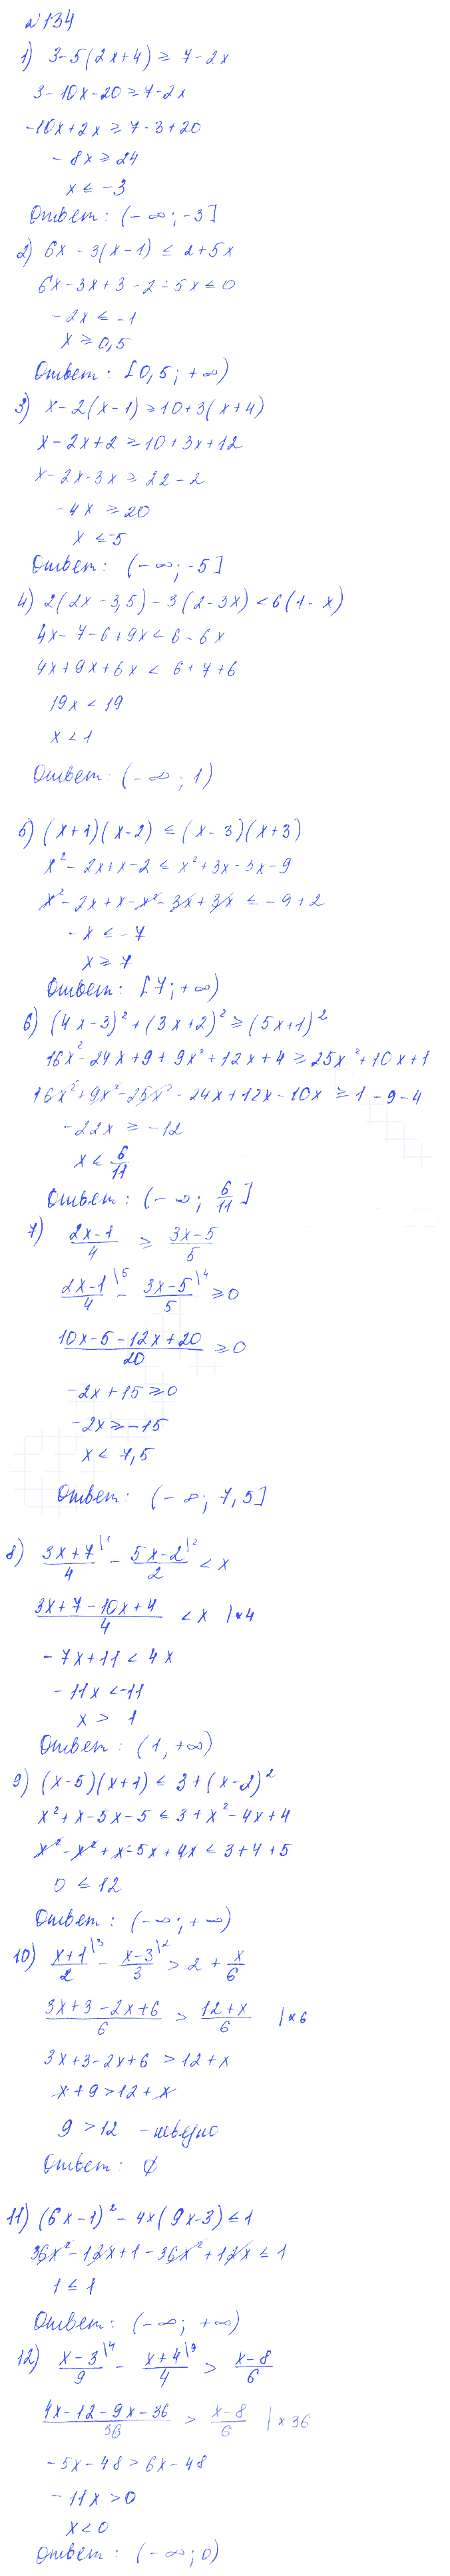 №134
1) 3-5(2x+4) ≥ 7-2x
3-10x-20 ≥ 7-2x
-10x+2x ≥ 7-3+20
-8x ≥ 24
x ≤ -3
Ответ: (-∞; -3]
2) 6x - 3(x-1) ≤ 2+5x
6x-3x+3-2-5x ≤ 0
-2x ≤ -1
x ≥ 0,5
Ответ: [0,5; +∞)
3) x-2(x-1) ≥ 10+3(x+4)
x-2x+2 ≥ 10+3x+12
x-2x-3x ≥ 22-2
-4x ≥ 20
x ≤ -5
Ответ: (-∞; -5]
4) 2(2x-3,5)-3(2-3x) < 6(1-x)
4x-7-6+9x < 6-6x
4x+9x+6x < 6+7+6
19x < 19
x < 1
Ответ: (-∞; 1)
5) (x+1)(x-2) ≤ (x-3)(x+3)
x²-2x+x-2 ≤ x²+3x-3x-9
x²-2x+x-x²-3x+3x ≤ -9+2
-x ≤ -7
x ≥ 7
Ответ: [7; +∞)
6) (4x-3)²+(3x+2)² ≥ (5x+1)²
16x²-24x+9+9x²+12x+4 ≥ 25x²+10x+1
16x²+9x²-25x²-24x+12x-10x ≥ 1-9-4
-22x ≥ -12
x ≤ 6/11
Ответ: (-∞; 6/11]
7) (2x-1)/4 ≥ (3x-5)/5
(2x-1)/4 \5 - (3x-5)/5 \4 ≥ 0
(10x-5-12x+20)/20 ≥ 0
-2x+15 ≥ 0
-2x ≥ -15
x ≤ 7,5
Ответ: (-∞; 7,5]
8) (3x+7)/4 \1 - (5x-2)/2 \2 < x
(3x+7-10x+4)/4 < x |×4
-7x+11 < 4x
-11x < -11
x > 1
Ответ: (1, +∞)
9) (x-5)(x+1) ≤ 3+(x-2)²
x²+x-5x-5 ≤ 3+x²-4x+4
x²-x²+x-5x+4x ≤ 3+4+5
0 ≤ 12
Ответ: (-∞; +∞)
10) (x+1)/2 \3 - (x-3)/3 \2 > 2 + x/6
(3x+3-2x+6)/6 > (12+x)/6 |×6
3x+3-2x+6 > 12+x
x+9 > 12+x
9 > 12 - неверно
Ответ: ∅
11) (6x-1)²-4x(9x-3) ≤ 1
36x²-12x+1-36x²+12x ≤ 1
1 ≤ 1
Ответ: (-∞; +∞)
12) (x-3)/9 \4 - (x+4)/4 \9 > (x-8)/6
(4x-12-9x-36)/36 > (x-8)/6 |×36
-5x-48 > 6x-48
-11x > 0
x < 0
Ответ: (-∞; 0)